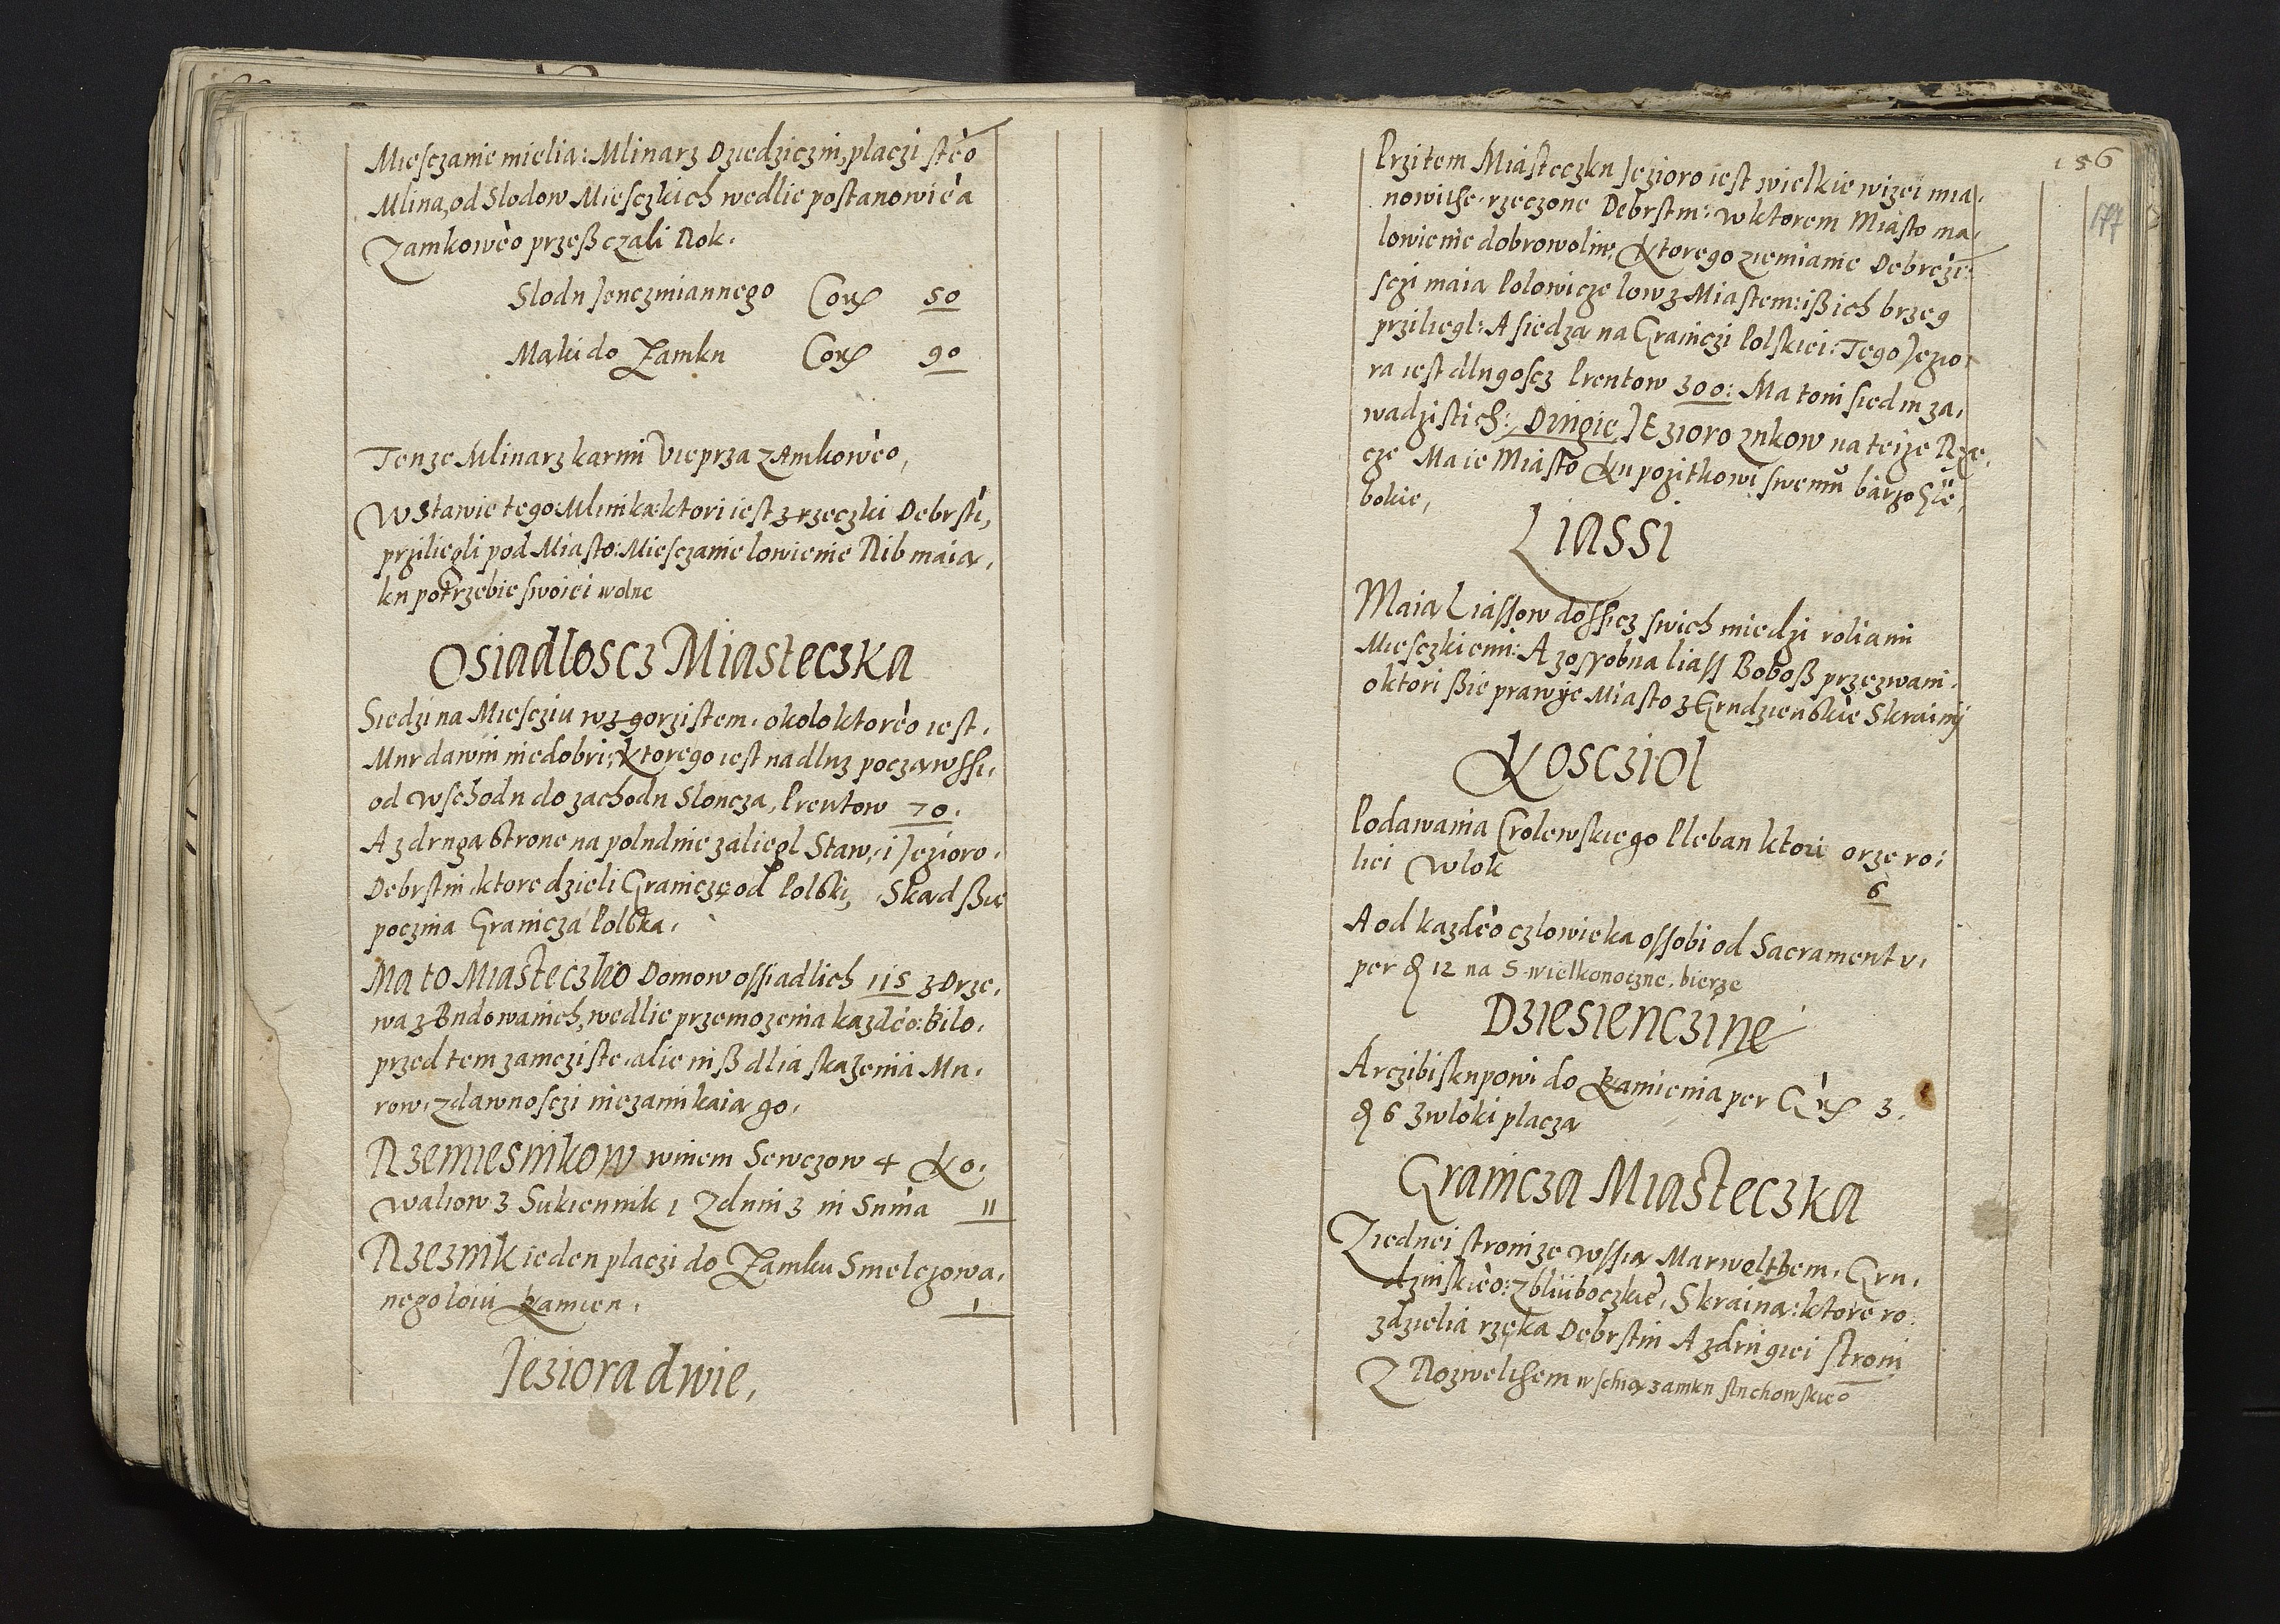 Miesczanie mielia: Mlinarz Dziedziczni, placzi stėo
Mlina, od Slodow Miesczkich wedlie postanowiėa
Zamkowėo przeß czali Rok.
Slodu Jenczmiannego Corẜ 50
Mąki do Zamku Corẜ 90
Tenze Mlinarz karmi Vieprza zAmkowėo,
W Stawie tego Mlinka ktori iest z rzeczki Debrsti,
prziliegli pod Miasto: Miesczanie lowienie Rib maią,
ku potrzebie swoiei wolne
Osiadloscz Miasteczka
Siedzi na Miesciu wzgorzistem. okolo ktorėo iest.
Mur dawni niedobri: Ktorego iest nadluz począwssi,
od Wschodu do zachodu Sloncza, Prentow 70.
A z drugą strone na poludnie zaliegl Staw, i Jezioro.
Debrstin ktore dzieli Graniczę od Polski, Skąd ßie
poczina Granicza Polska.
Ma to Miasteczko Domow ossiadlich 115 z Drze,
wa z Budowanich, wedlie przemozenia kazdėo: Bilo.
przed tem zamcziste. alie niß dlia skazenia Mu.
row, z dawnosczi niezamikaią go.
Rzemiesnikow winem Sewczow 4 Ko.
waliow 3 Sukiennik 1 Zduni 3 in Suma 11
Rzeznik ieden placzi do Zamku Smelczowa.
nego loiu kamien. 1
Jeziora dwie,
156
177
Przi tem Miasteczku Jezioro iest wielkie wizei mia,
nowithe. rzeczone Debrstin: w ktorem Miasto ma,
lowienie dobrowolne, Ktorego ziemianie Debrcze,
sczi maia Polowicze low z Miastem: iß ich brzeg
prziliegl: A siedzą na Graniczi Polskiei: Tego Jezio,
ra iest dlugoscz Prentow 300: Ma toni siedm za,
wadzistich: Drugie JEzioro znkow na teize Rze,
cze Ma ie Miasto Ku pozitkowi swemu barzo Glė,
bokie,
Liassi
Maią Liassow dossicz swich miedzi roliami
Miesczkiemi: A zosobna liass Boboß przezwani.
o ktori ßie prawuje Miasto z Grudzienskie Skraini
Koscziol
Podawania Crolewskiego Pleban ktori orze ro:
liei Wlok 6
A od kazdėo czlowieka ossobi od Sacramentu.
per ₰ 12 na S wielkonoczne. bierze
Dziesienczine
Arczibiskupowi do Kamienia per Corẜ 3.
₰ 6 z wloki placzą
Granicza Miasteczka
Z iednei stroni ze wssią Marwelthem. Gru.
dzinskiėo: z bliüboczkiė, Skrainą: ktore ro.
zdzielia rzeka Debrstin A z drugiei stroni
Z Rozwelthem wschią zamku sluchowskieo